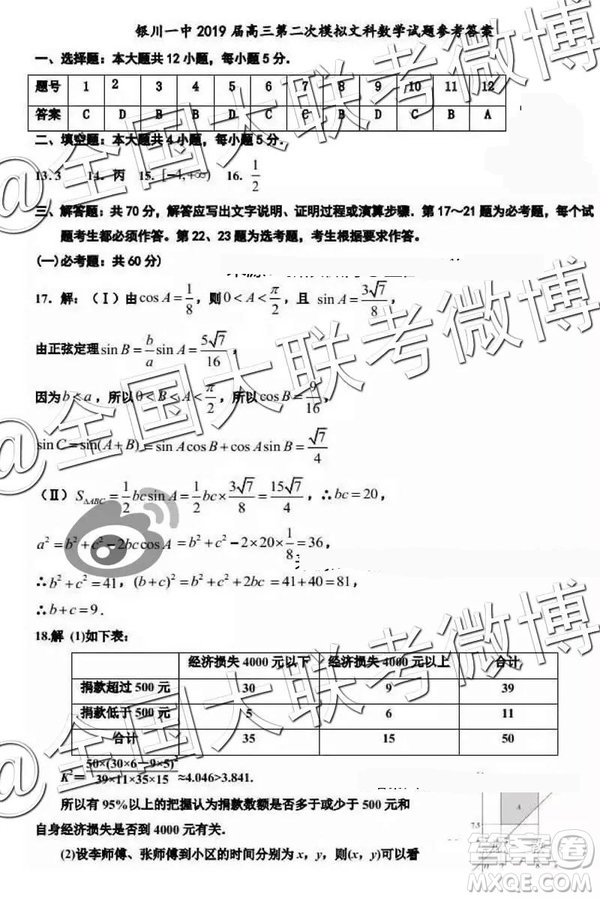 银川一中 2019 届高三第二次模拟文科数学试题参考答案
一、选择题：本大题共 12 小题，每小题 5 分．
题号 1 2 3 4 5 6 7 8 9 10 11 12
答案 C D B B D C B A
二、填空题：本大题共 4 小题，每小题 5 分．
13. 3 14. 丙 15. [-4,+∞) 16. 1/2
三、解答题：共 70 分，解答应写出文字说明、证明过程或演算步骤．第 17～21 题为必考题，每个试
题考生都必须作答。第 22、23 题为选考题，考生根据要求作答。
(一)必考题：共 60 分)
17．解：（Ⅰ）由 cos A = 1/8，则 0 < A < π/2，且 sin A = 3√7/8，
由正弦定理 sin B = b/a sin A = 5√7/16，
因为 b < a，所以 0 < B < A < π/2，所以 cos B = 9/16，
sin C = sin(A + B) = sin A cos B + cos A sin B = √7/4
（Ⅱ）S△ABC = 1/2 bc sin A = 1/2 bc × 3√7/8 = 15√7/4，∴ bc = 20，
a² = b² + c² - 2bc cos A = b² + c² - 2×20×1/8 = 36，
∴ b² + c² = 41，(b + c)² = b² + c² + 2bc = 41 + 40 = 81，
∴ b + c = 9．
18.解 (1)如下表：
经济损失 4000 元以下 经济损失 4000 元以上 合计
捐款超过 500 元 30 9 39
捐款低于 500 元 5 6 11
合计 35 15 50
K² = 50×(30×6－9×5)²/39×11×35×15 ≈4.046>3.841.
所以有 95%以上的把握认为捐款数额是否多于或少于 500 元和
自身经济损失是否到 4000 元有关.
(2)设李师傅、张师傅到小区的时间分别为 x，y，则(x，y)可以看
A
7.5
@全国大联考微博
答案圈
MXQE.COM